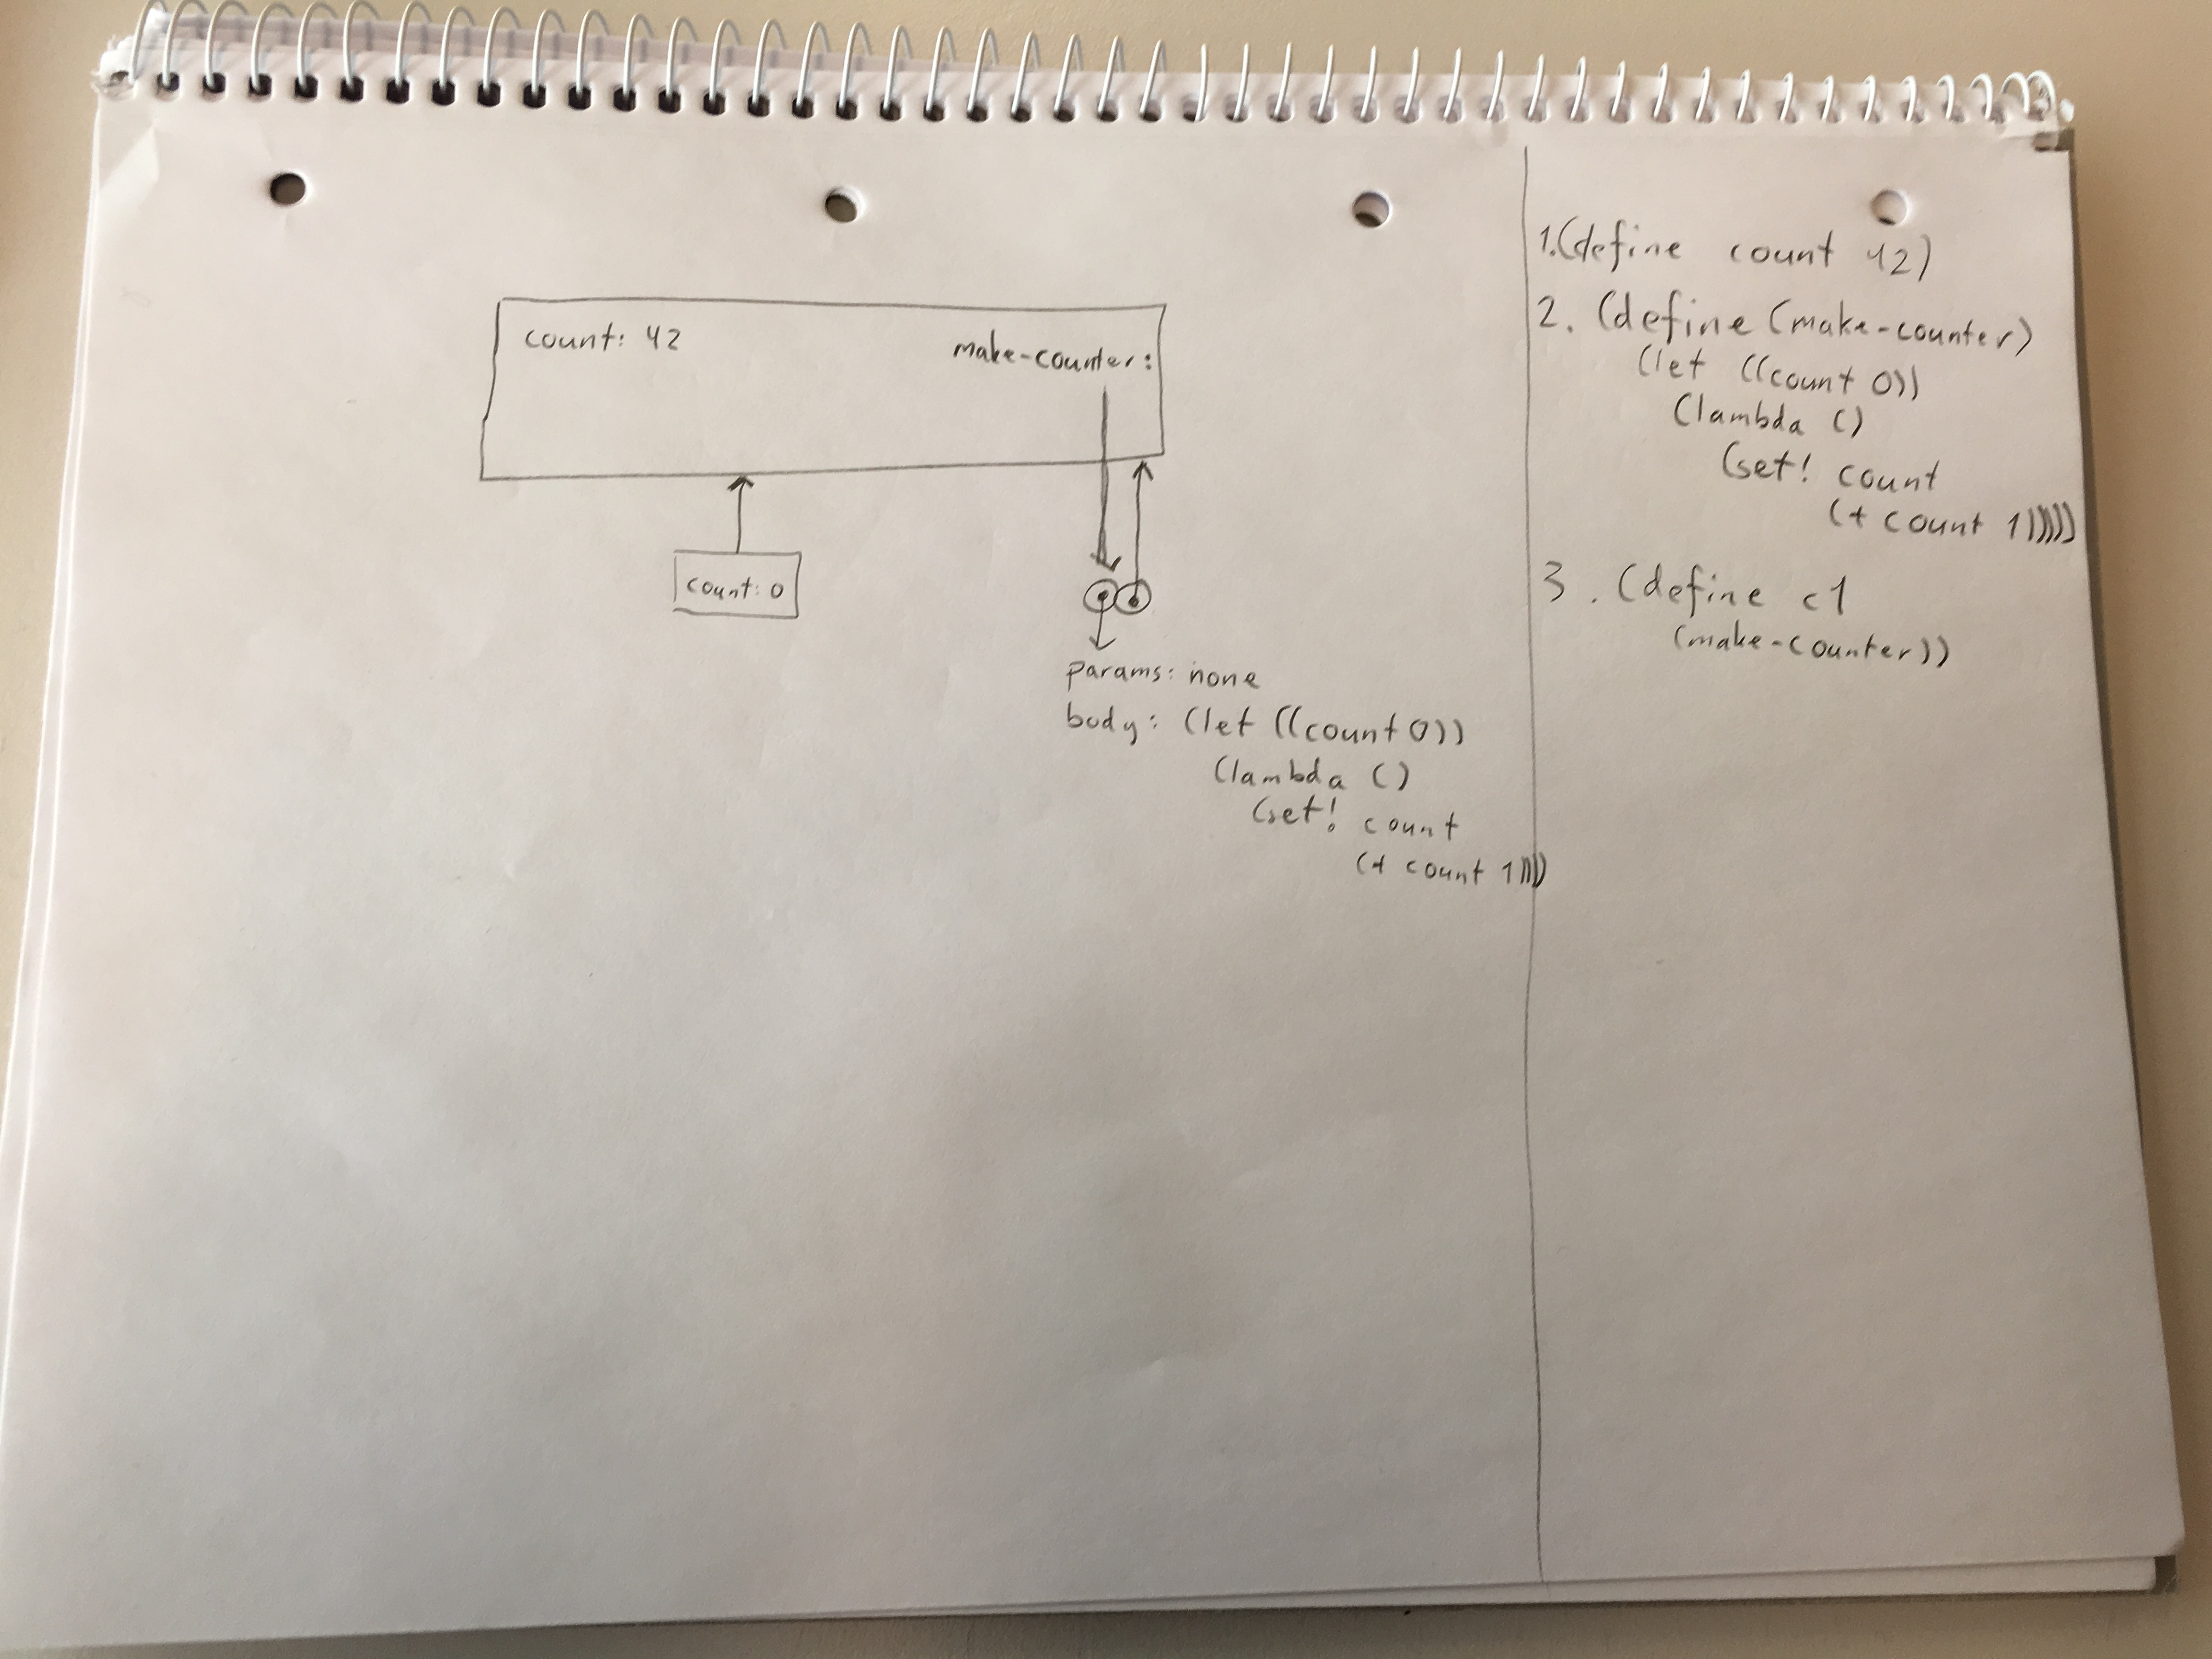 count: 42
make-counter:
count: 0
params: none
body: (let ((count 0))
(lambda ()
(set! count
(+ count 1))))
1.(define count 42)
2. (define (make-counter)
(let ((count 0))
(lambda ()
(set! count
(+ count 1)))))
3. (define c1
(make-counter))